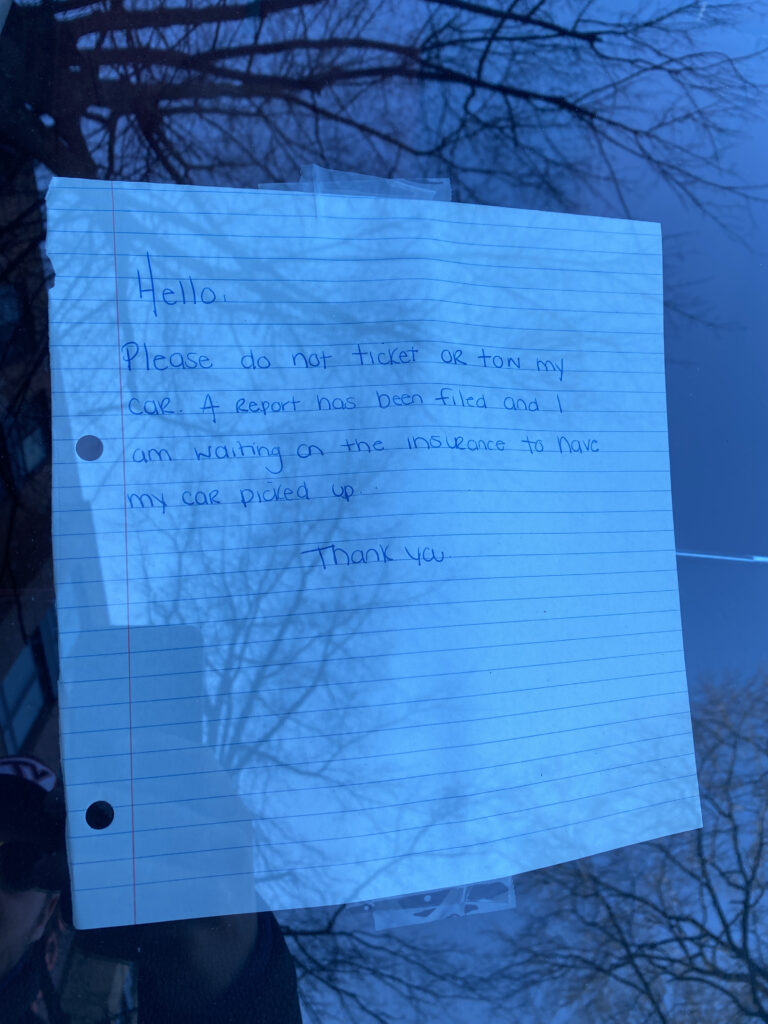 Hello.
Please do not ticket OR tow my
CAR. A Report has been filed and I
am waiting on the insurance to have
my CAR picked up.
Thank you.